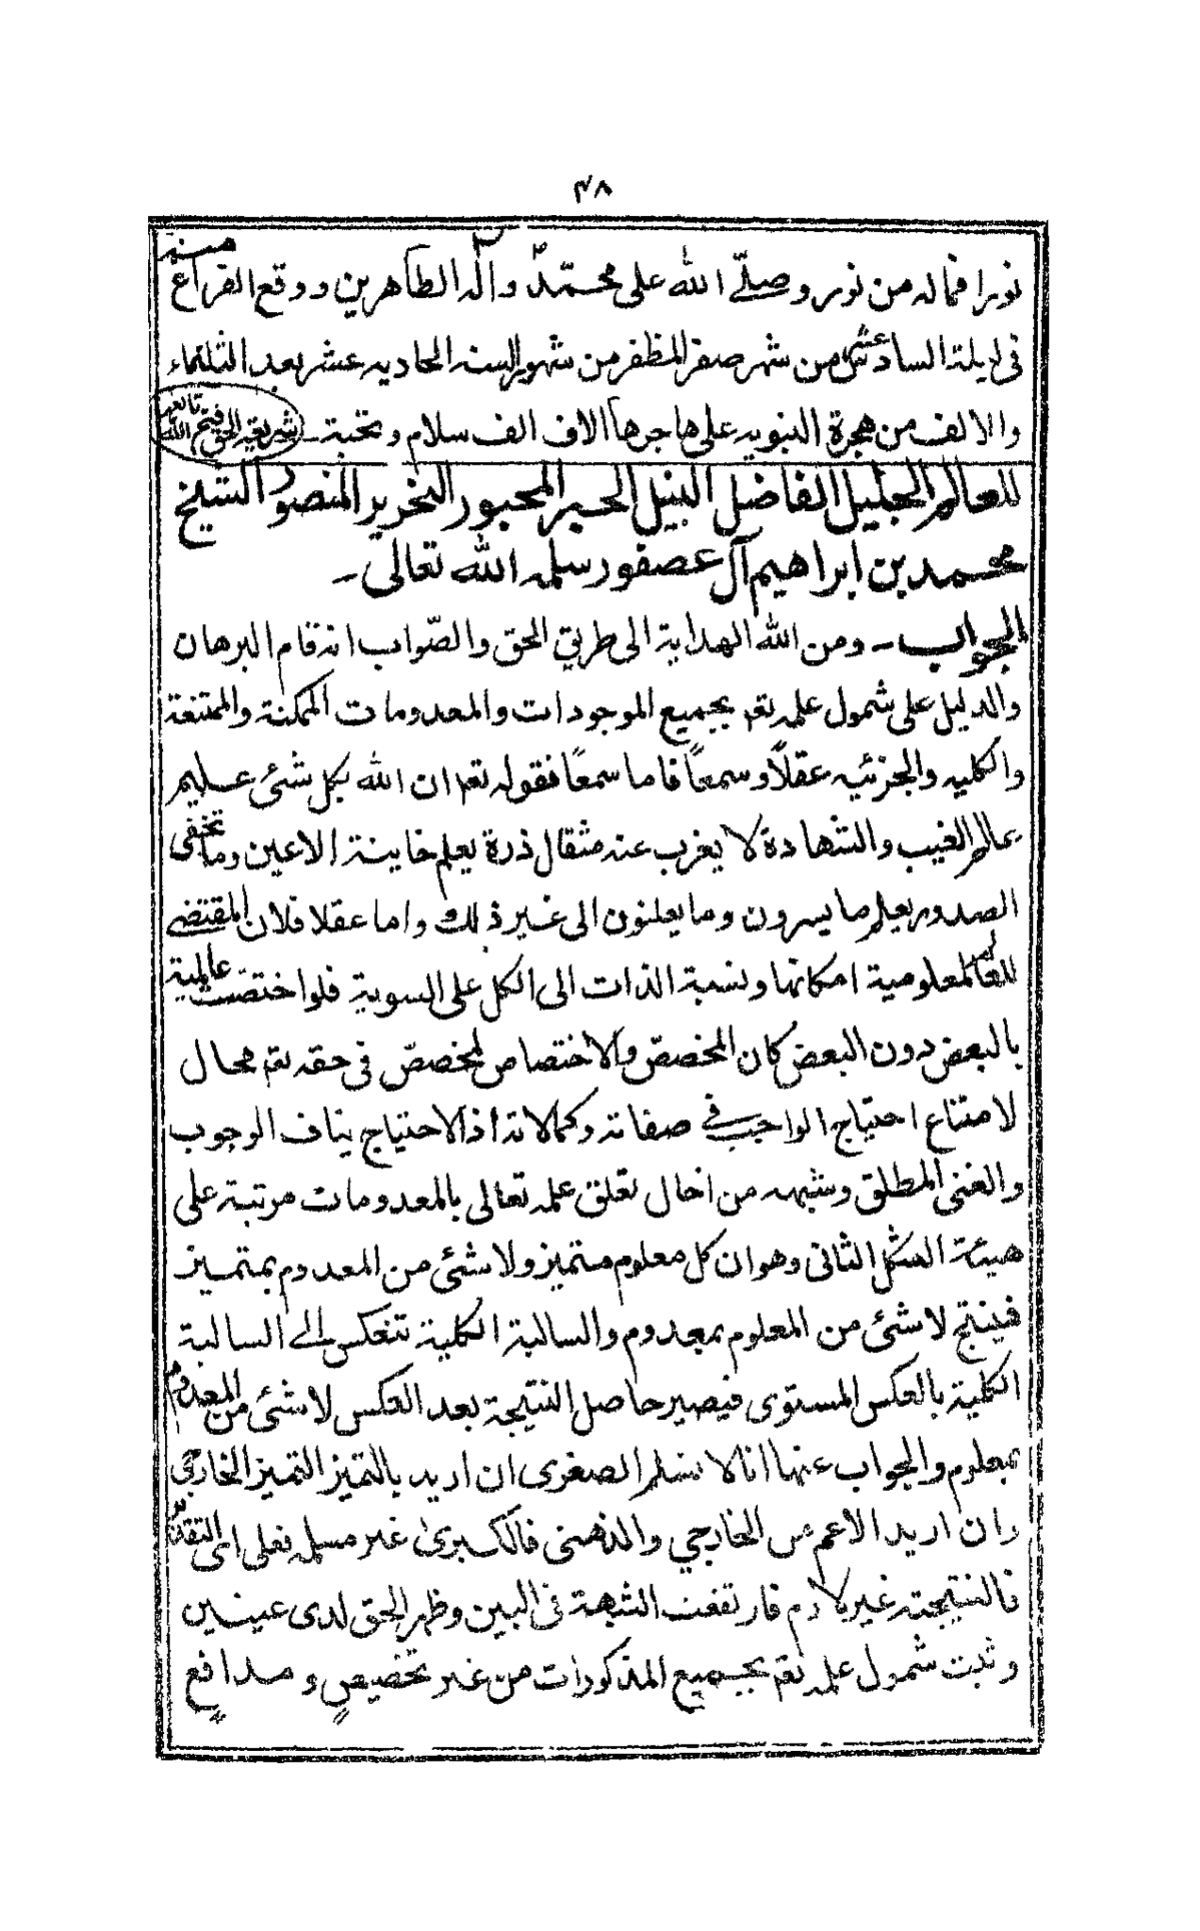 ٣٨
نورا فماله من نور وصلّے الله على محمّد وآله الطاهرين ووقع الفراغ منه
فى ليلة السادس عشر من شهر صفر المظفر من شهور السنه الحاديه عشر بعد الثلثماء
والالف من هجرة النبويه على هاجرها آلاف الف سلام وتحية ـ
للعالم الجليل الفاضل النبيل الحبر المحبور النحرير المنصور الشيخ
محمد بن ابراهيم آل عصفور سلمه الله تعالى ـ
الجواب ـ ومن الله الهداية الى طريق الحق والصّواب انه قام البرهان
والدليل على شمول علمه تعم بجميع الموجودات والمعدومات الممكنة والممتنعة
والكليه والجزئيه عقلاً وسمعاً فاما سمعاً فقوله تعم ان الله بكل شئى عليم
عالم الغيب والشهادة لا يغرب عنه مثقال ذرة يعلم خاينة الاعين وما تخفى
الصدور يعلم ما يسرون وما يعلنون الى غير ذلك واما عقلا فلان المقتضے
للعالمعلومية امكانها ونسبة الذات الى الكل على السوية فلو اختصّت عالمية
بالبعض دون البعض كان المخصصّ والاختصاص لمخصصّ فى حقه تعم محال
لامتناع احتياج الواجب فے صفاته وكمالاته اذ الاحتياج يناف الوجوب
والغنى المطلق وشبهه من احال تعلق علمه تعالى بالمعدومات مرتبة على
هيئة الشكل الثانى وهو ان كل معلوم متميز ولا شئى من المعدوم بمتميز
فينتج لا شئى من المعلوم بمعدوم والسالبة الكلية تنعكس الے السالبة
الكلية بالعكس المستوى فيصير حاصل النتيجة بعد العكس لا شئى من المعدوم
بمعلوم والجواب عنها انا لا نسلم الصغرى ان اريد بالتميز التميز الخارجى
وان اريد الاعم من الخارجي والذهنى فالكبرىٰ غير مسلمه فعلى اى التقدير
فالنتيجته غير لازم فارتفعت الشبهة فى البين وظهر الحق لدى عينين
وثبت شمول علمه تعم بجميع المذكورات من غير تخصيصٍ ومدافعٍ